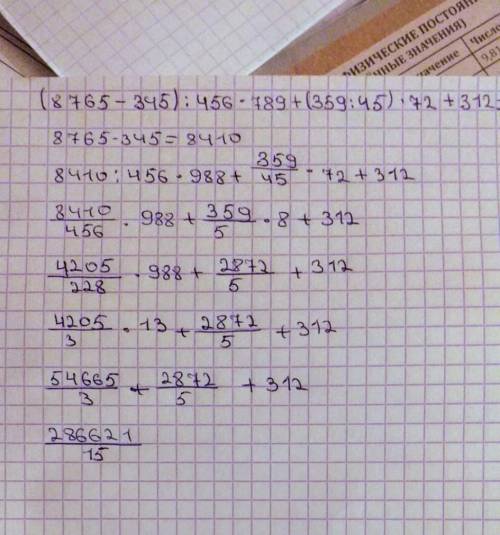 ФИЗИЧЕСКИЕ ПОСТОЯН
ЗНАЧЕНИЯ)
Число
(8765-345):456·789+(359:45)·72+312=
8765-345=8410
8410:456·988+359/45·72+312
8410/456·988+359/5·8+312
4205/228·988+2872/5+312
4205/3·13+2872/5+312
54665/3+2872/5+312
286621/15